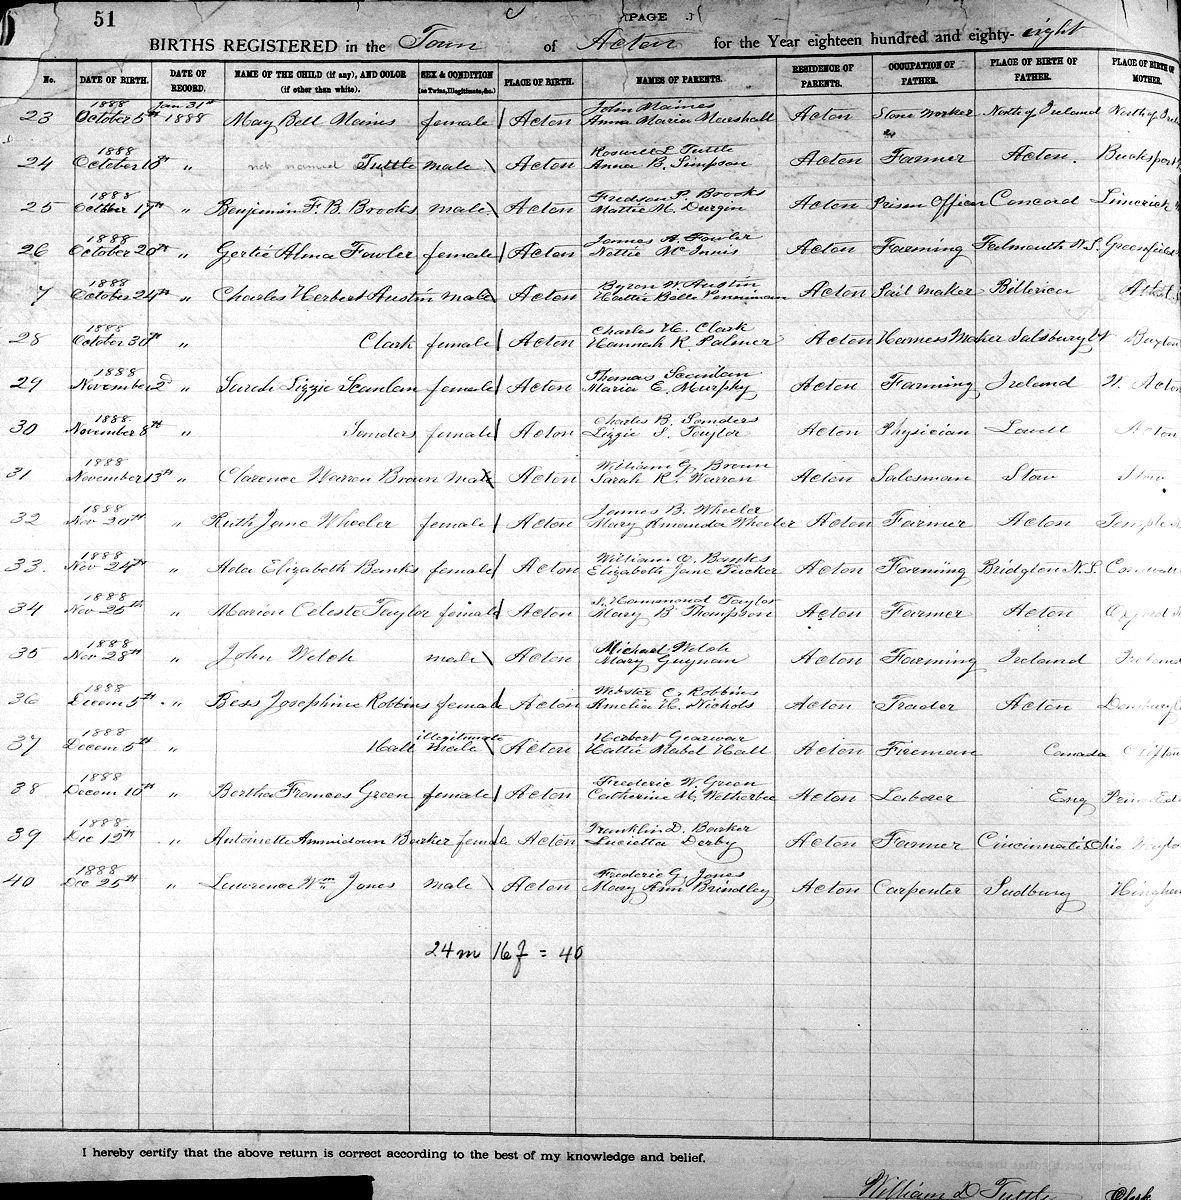 51
PAGE
BIRTHS REGISTERED in the Town of Acton for the Year eighteen hundred and eighty-eight
No. DATE OF BIRTH. DATE OF RECORD. NAME OF THE CHILD (if any), AND COLOR (if other than white). SEX & CONDITION (as Twins, Illegitimate, &c.) PLACE OF BIRTH. NAMES OF PARENTS. RESIDENCE OF PARENTS. OCCUPATION OF FATHER. PLACE OF BIRTH OF FATHER. PLACE OF BIRTH OF MOTHER.
23 1888 October 5th Jan 31st 1888 May Bell Maines female Acton John Maines Anna Maria Marshall Acton Stone Worker North of Ireland North of
24 1888 October 10th " not named Tuttle male Acton Roswell L Tuttle Anna B. Simpson Acton Farmer Acton. Bucksport
25 1888 October 17th " Benjimin F. B. Brooks male Acton Fredson P. Brooks Mattie M. Durgin Acton Prison Officer Concord Limerick
26 1888 October 20th " Gertie Alma Fowler female Acton James A. Fowler Nettie McInnis Acton Farming Falmouth N.S. Greenfield
7 1888 October 24th " Charles Herbert Austin male Acton Byron W. Austin Hattie Belle Penniman Acton Sail Maker Billerica
28 1888 October 30th " Clark female Acton Charles H. Clark Hannah R. Palmer Acton Harness Maker Salsbury Vt
29 1888 November 2d " Sarah Lizzie Scanlan female Acton Thomas Scanlan Maria E. Murphy Acton Farming Ireland W. Acton
30 1888 November 8th " Sanders female Acton Charles B. Sanders Lizzie S. Taylor Acton Physician Lowell Acton
31 1888 November 13th " Clarence Warren Brown male Acton William G. Brown Sarah R. Warren Acton Salesman Stow Stow
32 1888 Nov 20th " Ruth Jane Wheeler female Acton James B. Wheeler Mary Amanda Wheeler Acton Farmer Acton Temple
33. 1888 Nov 24th " Ada Elizabeth Banks female Acton William C. Banks Elizabeth Jane Tucker Acton Farming Bridgton N.S.
34 1888 Nov 25th " Marion Celeste Taylor female Acton S. Hammond Taylor Mary B Thompson Acton Farmer Acton
35 1888 Nov 28th " John Welch male Acton Michael Welch Mary Guynan Acton Farming Ireland Ireland
36 1888 Decem 5th " Bess Josephine Robbins female Acton Webster C. Robbins Amelia H. Nichols Acton Trader Acton
37 1888 Decem 5th " Hall illegitimate male Acton Herbert Hattie Mabel Hall Acton Fireman Canada Clifton
38 1888 Decem 10th " Bertha Frances Green female Acton Frederic W. Green Catherine M. Wetherbee Acton Laborer Eng
39 1888 Dec 12th " Antoinette Ammidown Barker female Acton Franklin D. Barker Lucietta Derby Acton Farmer Cincinnati Ohio
40 1888 Dec 25th " Lawrence Wm Jones male Acton Frederic G. Jones Mary Ann Brindley Acton Carpenter Sudbury Hingham
24 m 16 f = 40
I hereby certify that the above return is correct according to the best of my knowledge and belief.
William D Tuttle Clerk